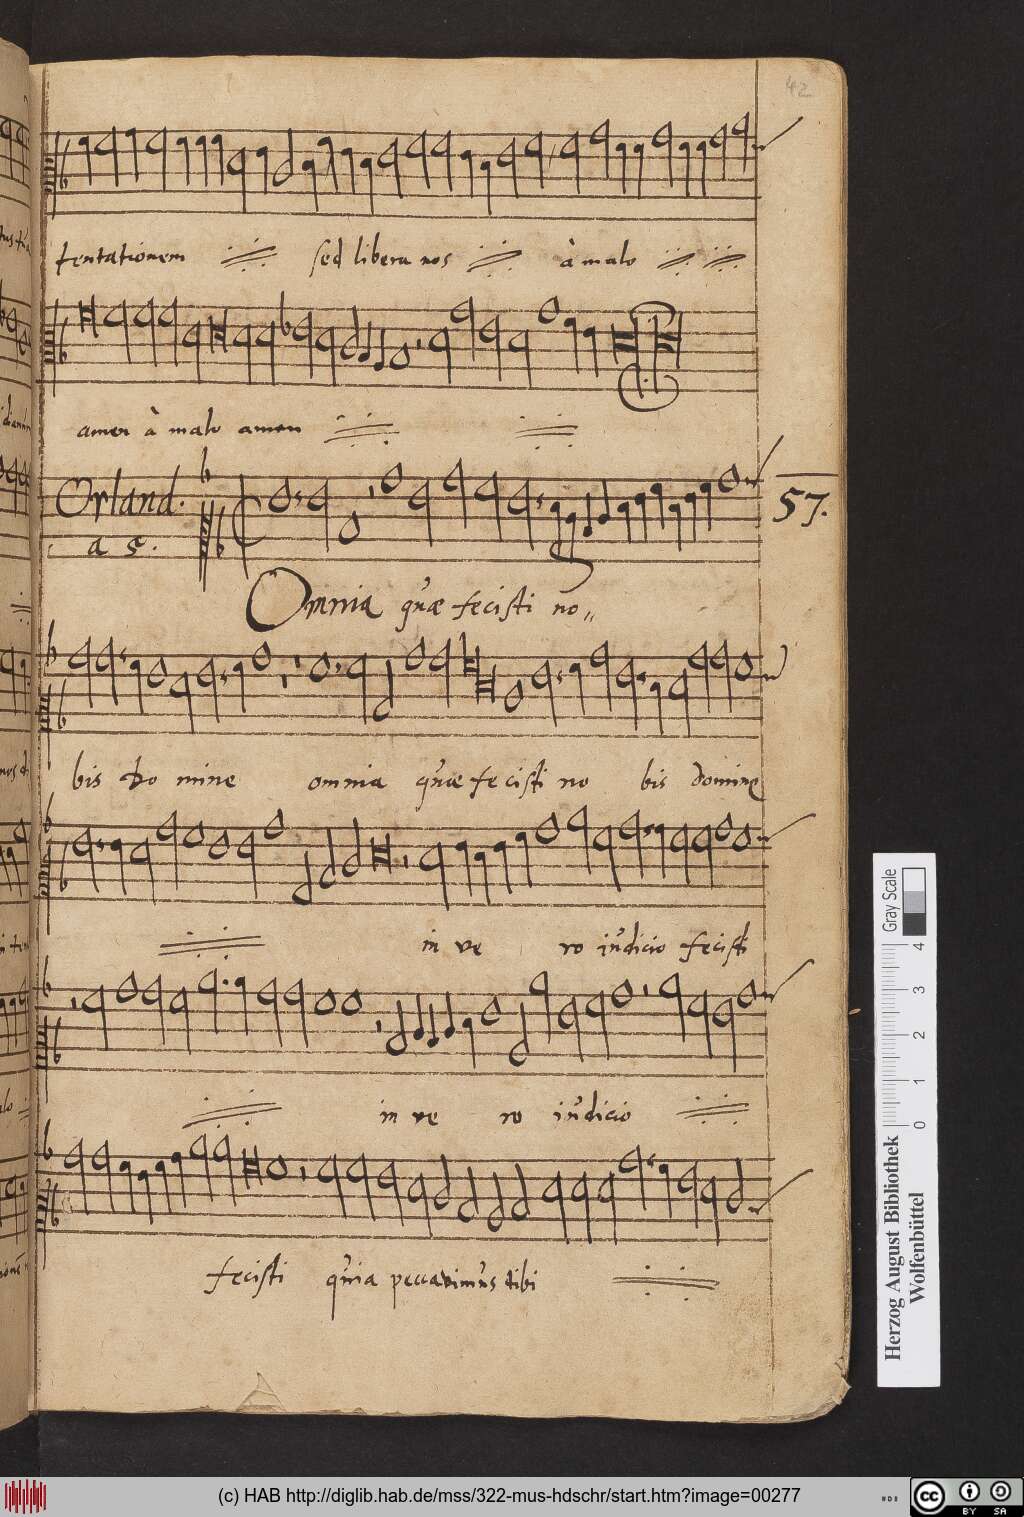 42
tentationem sed libera nos à malo
amen à malo amen
Orland.
a 5.
57.
Omnia quæ fecisti no
bis do mine omnia quæ fecisti no bis domine
in ve ro iudicio fecisti
in ve ro iudicio
fecisti quia peccavimus tibi
Gray Scale
4
3
2
1
0
Herzog August Bibliothek
Wolfenbüttel
(c) HAB http://diglib.hab.de/mss/322-mus-hdschr/start.htm?image=00277
cc BY SA